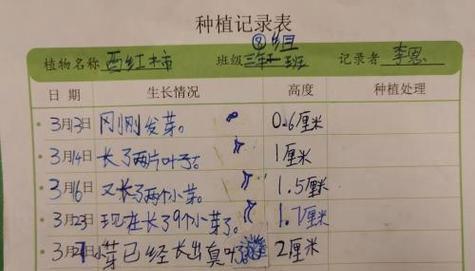 种植记录表
⑧组
植物名称 西红柿 班级 三年 班 记录者 李恩
日 期 生长情况 高度 种植处理
3月13日 刚刚发芽。 0.6厘米
3月14日 长了两片叶子。 1厘米
3月16日 又长了两个小芽。 1.5厘米
3月23日 现在长了9个小芽了。 1.7厘米
3月 日 小芽已经长出真叶 2厘米